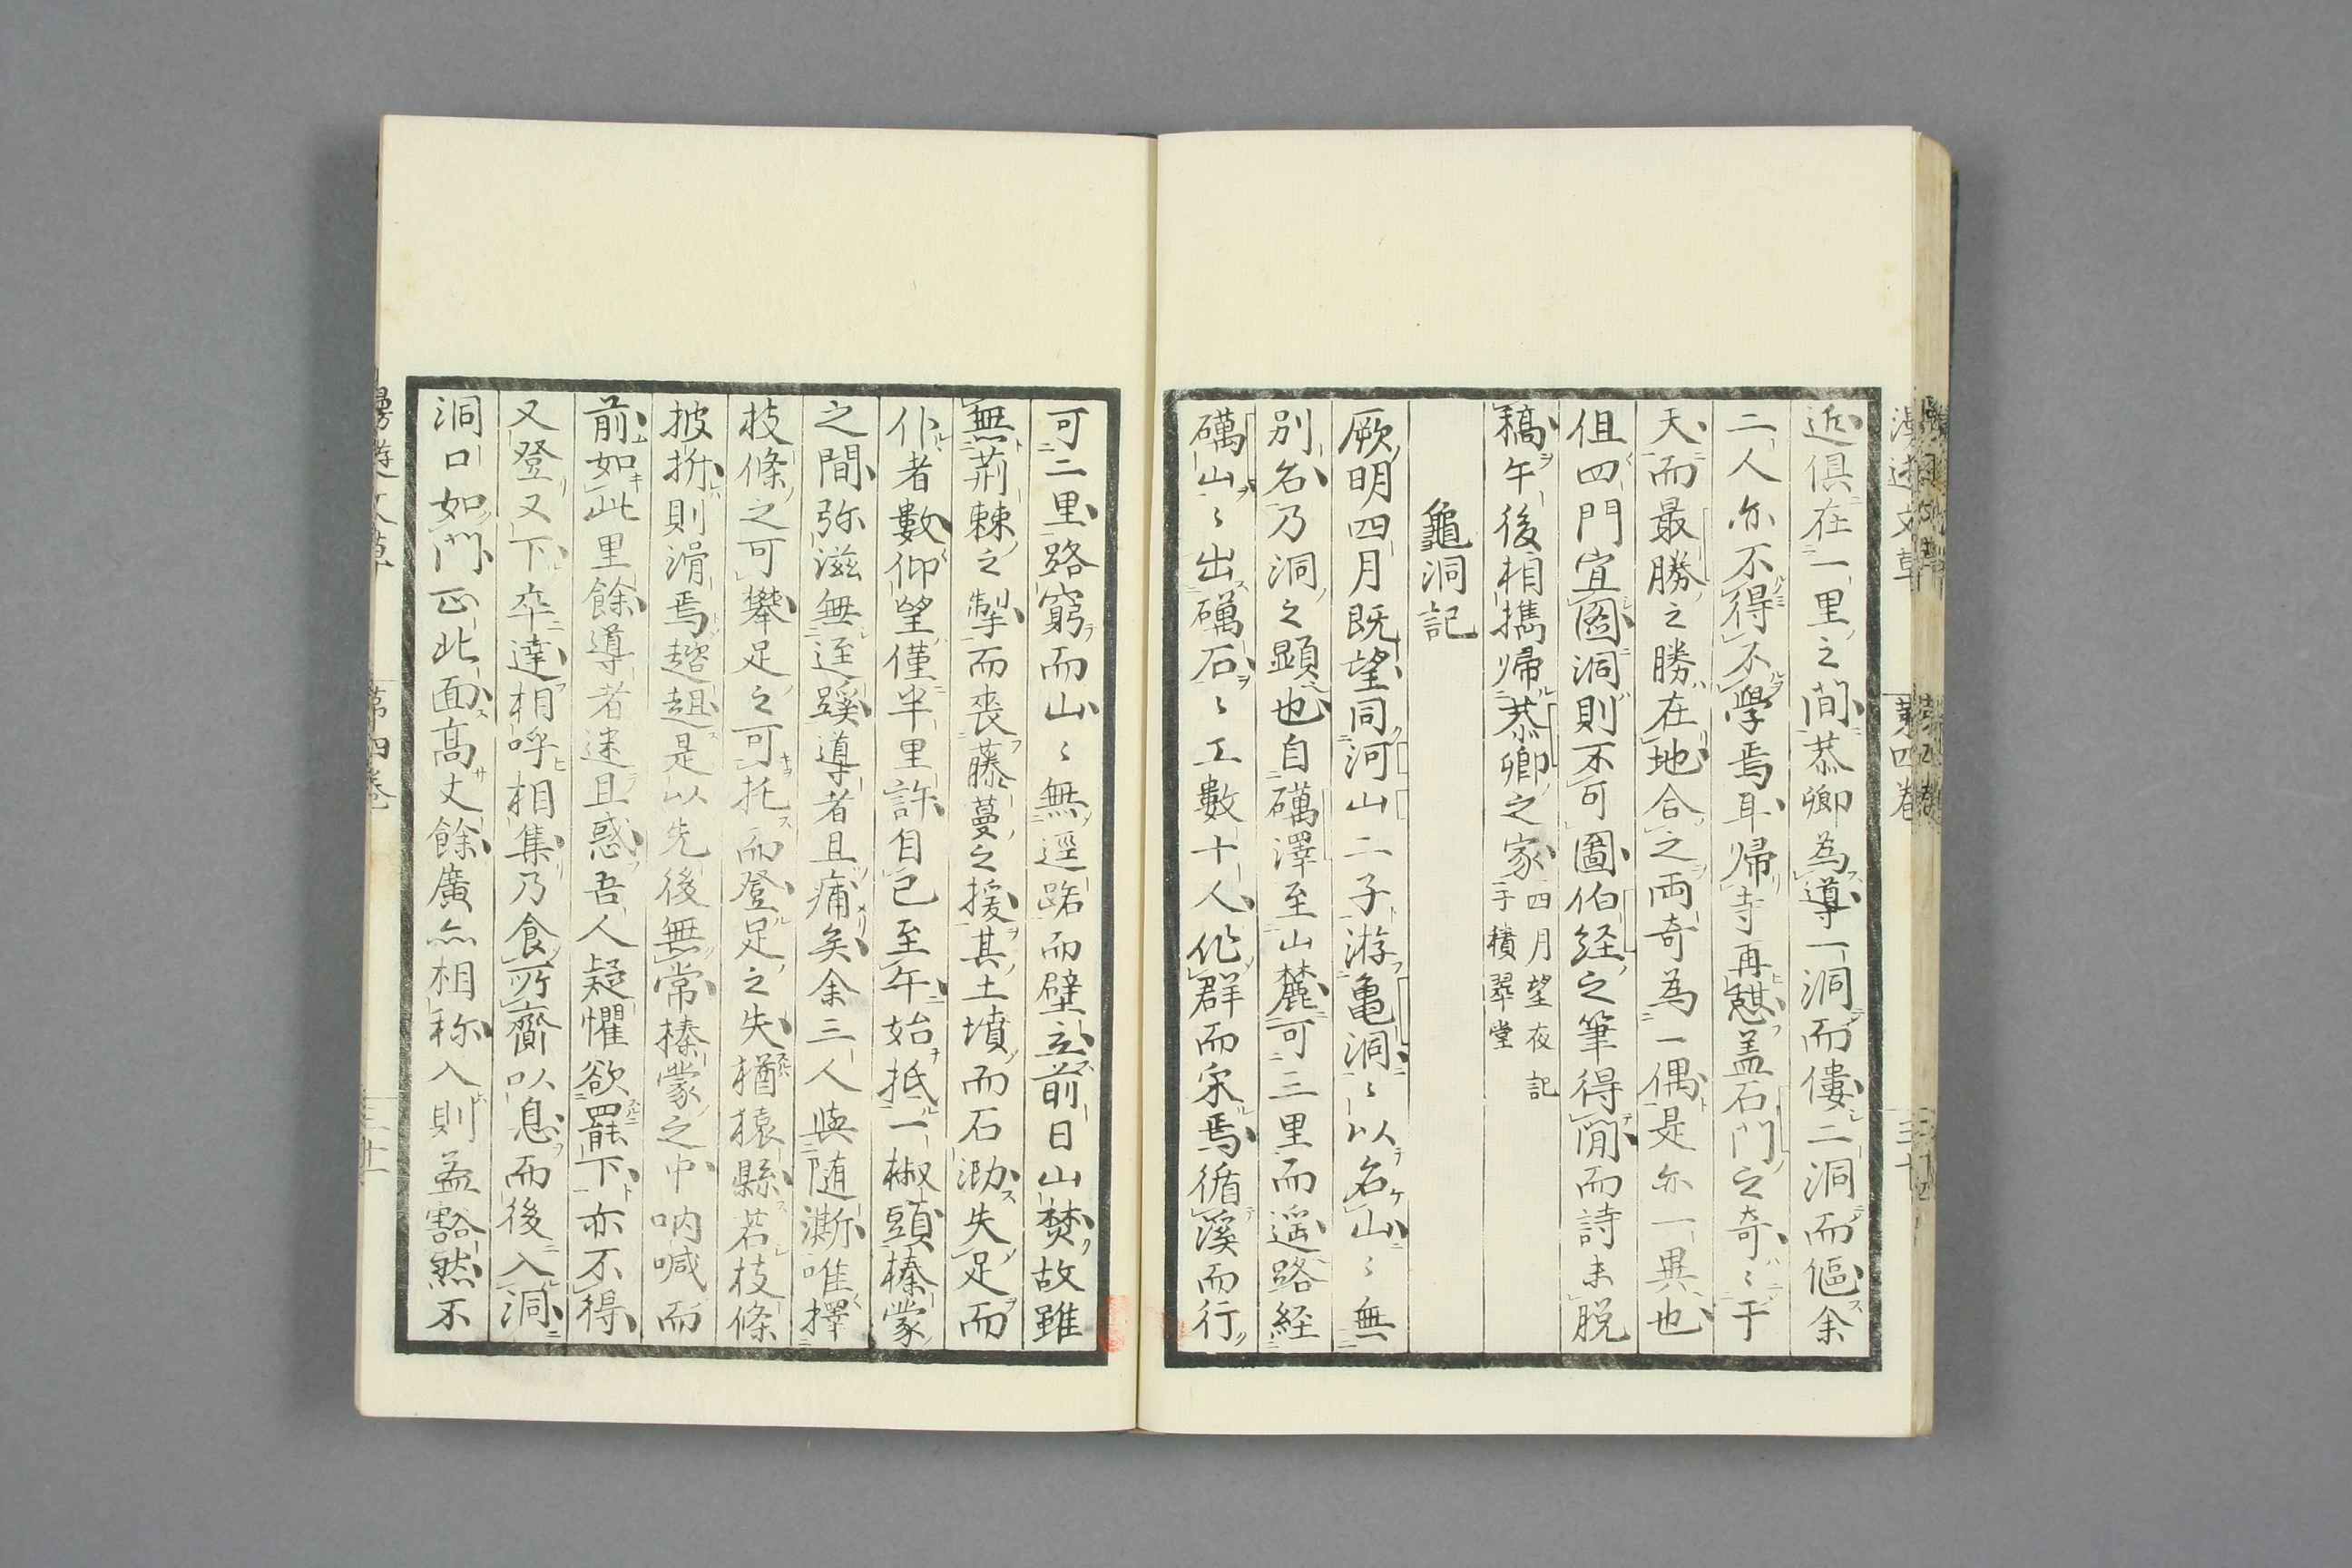 近俱在一里之間恭卿為導一洞而僂二洞而傴余
二人亦不得不學焉耳帰寺再憩盖石門之奇〻于
天而最勝之勝在地合之両奇為一偶是亦一異也
但四門宜圖洞則不可圖伯経之筆得間而詩未脱
稿午後相携帰恭卿之家四月望夜記
于積翠堂
龜洞記
厥明四月既望同河山二子游亀洞〻以名山〻無
別名乃洞之顕也自礪澤至山麓可三里而遥路経
礪山〻出礪石〻工數十人作群而家焉循溪而行
可二里路窮而山〻無逕路而壁立前日山焚故雖
無荊棘之掣而喪藤蔓之援其土墳而石泐失足而
仆者數仰望僅半里許自已至午始抵一椒頭榛蒙
之間弥滋無逕蹊導者且痡矣余三人與随澌唯擇
枝條之可攀足之可托而登足之失猶猿縣若枝條
披折則滑焉趦趄是以先後無常榛蒙之中吶喊而
前如此里餘導者迷且惑吾人疑懼欲罷下亦不得
又登又下卒達相呼相集乃食所齎以息而後入洞
洞口如門正北面高丈餘廣亦相称入則益豁然不
漫遊文草
第四卷